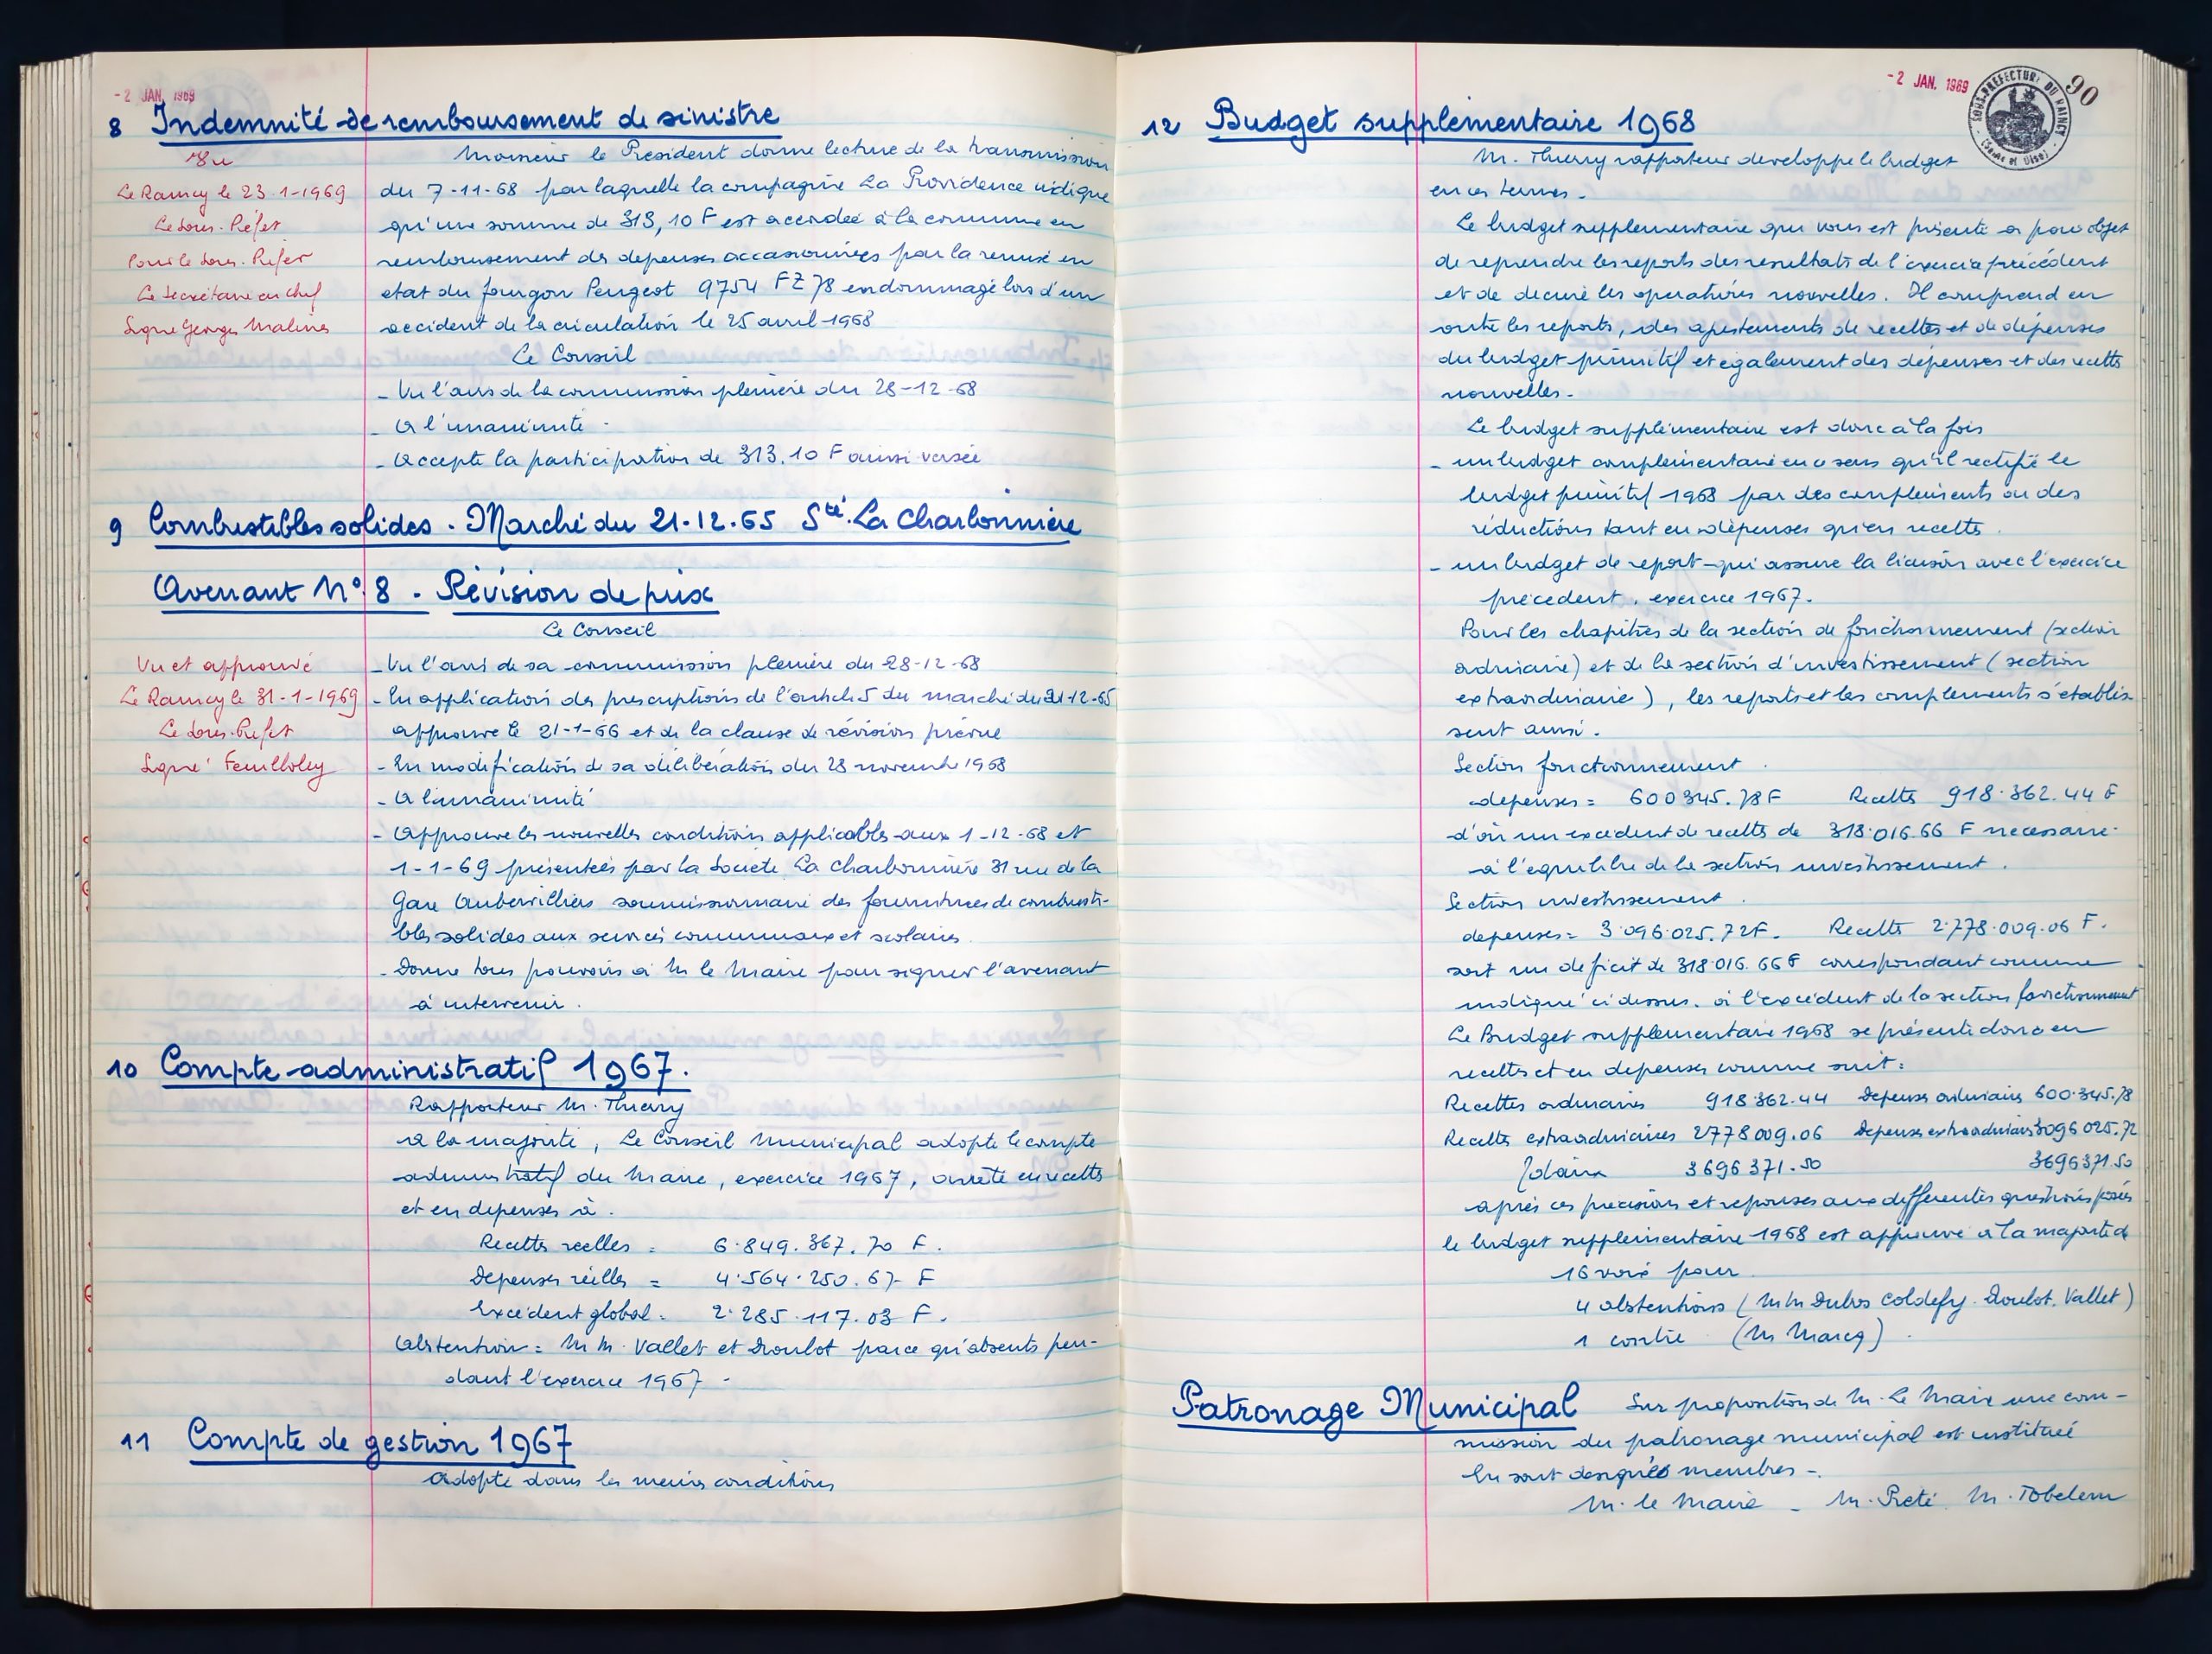 - 2 JAN. 1969
8 Indemnité de remboursement de sinistre
Vu
Le Raincy le 23-1-1969
Le Sous-Préfet
Pour le Sous-Préfet
Le Secrétaire en chef
Signé Georges Malines
Monsieur le Président donne lecture de la transmission
du 7-11-68 par laquelle la compagnie La Providence indique
qu'une somme de 313,10 F est accordée à la commune en
remboursement des depenses occasionnées par la remise en
etat du fourgon Peugeot 9754 FZ 78 endommagé lors d'un
accident de la circulation le 25 avril 1968
Le Conseil
- Vu l'avis de la commission pleniere du 28-12-68
- A l'unanimité -
- Accepte la participation de 313.10 F ainsi versée
9 Combustibles solides - Marché du 21-12-65 Sté. La Charbonnière
Avenant N° 8 - Révision de prix
Le Conseil
Vu et approuvé
Le Raincy le 31-1-1969
Le Sous-Préfet
Signé Feuilloley
- Vu l'avis de sa commission plenière du 28-12-68
- En application des prescriptions de l'article 5 du marché du 21-12-65
approuvé le 21-1-66 et de la clause de révision prévue
- En modification de sa délibération du 28 novembre 1968
- A l'unanimité
- Approuve les nouvelles conditions applicables aux 1-12-68 et
1-1-69 présentées par la Société La Charbonnière 31 rue de la
Gare Aubervilliers soumissionnaire des fournitures de combusti-
bles solides aux services communaux et scolaires
- Donne tous pouvoirs à M le Maire pour signer l'avenant
à intervenir.
10 Compte administratif 1967.
Rapporteur M. Thierry
A la majorité, Le Conseil Municipal adopte le compte
administratif du Maire, exercice 1967, arrêté en recettes
et en depenses à.
Recettes reelles = 6.849.367.70 F.
Depenses réelles = 4.564.250.67 F
Excédent global = 2.285.117.03 F.
Abstention = M M. Vallet et Droulot parce qu'absents pen-
dant l'exercice 1967 -
11 Compte de gestion 1967
Adopté dans les mêmes conditions
- 2 JAN. 1969
SOUS-PREFECTURE DU RAINCY
(Seine et Oise)
90
12 Budget supplémentaire 1968
M. Thierry rapporteur developpe le budget
en ces termes -
Le budget supplementaire qui vous est présenté a pour objet
de reprendre les reports des resultats de l'exercice précédent
et de decrire les operations nouvelles. Il comprend en
outre les reports, des ajustements de recettes et de dépenses
du budget primitif et egalement des dépenses et des recettes
nouvelles -
Le budget supplémentaire est donc à la fois
- un budget complémentaire en ce sens qu'il rectifie le
budget primitif 1968 par des complements ou des
réductions tant en dépenses qu'en recettes.
- un budget de report - qui assure la liaison avec l'exercice
précedent, exercice 1967.
Pour les chapitres de la section de fonctionnement (section
ordinaire) et de la section d'investissement (section
extraordinaire), les reports et les complements s'établis-
sent ainsi.
Section fonctionnement.
depenses = 600345.78 F Recettes 918.362.44 F
d'où un excedent de recettes de 318.016.66 F necessaire
à l'equilibre de la section investissement.
Section investissement.
depenses = 3.096.025.72 F. Recettes 2.778.009.06 F.
soit un deficit de 318.016.66 F correspondant comme
indiqué ci dessus. à l'excédent de la section fonctionnement
Le Budget supplementaire 1968 se présente donc en
recettes et en depenses comme suit:
Recettes ordinaires 918.362.44 Depenses ordinaires 600.345.78
Recettes extraordinaires 2778009.06 Depenses extraordinaires 3096025.72
Totaux 3696371.50 3696371.50
après ces precisions et reponses aux differentes questions posées
le budget supplementaire 1968 est approuvé à la majorité de
16 voix pour
4 abstentions (MM Dubos Coldefy. Droulot. Vallet)
1 contre (M Marcq).
Patronage Municipal Sur proposition de M. Le Maire une com-
mission du patronage municipal est instituée
En sont désignés membres -.
M. le Maire - M. Preti M. Tobelem